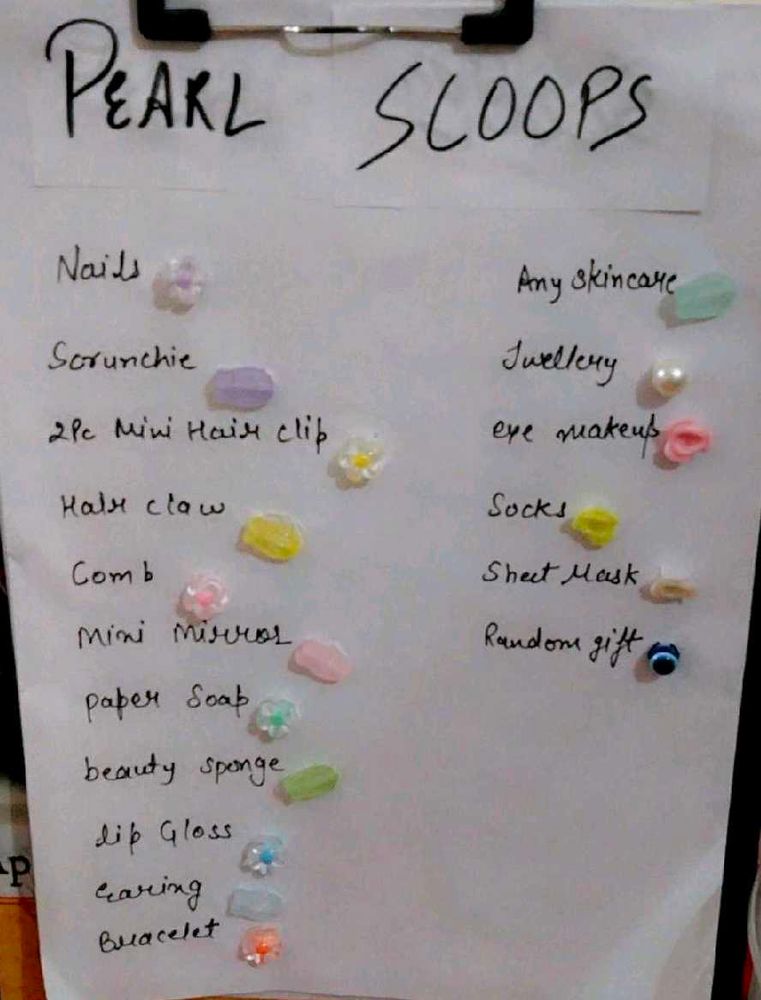 PEARL SCOOPS
Nails
Scrunchie
2Pc Mini Hair clip
Hair claw
Comb
Mini Mirror
paper Soap
beauty sponge
lip Gloss
Earing
Bracelet
Any skincare
Jwellery
eye makeup
Socks
Sheet Mask
Random gift